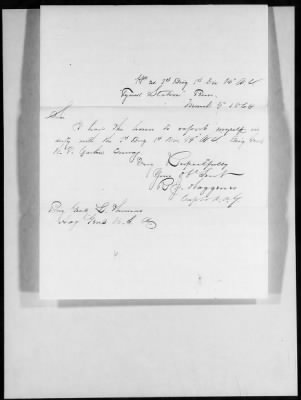 Hd Qrs 3d Brig 1st Div 14th A.C
Tyner's Station Tenn
March 9th 1864
Sir
I have the honor to report myself on
duty with the 3d Brig 1st Div 14th A.C. Brig Genl
Comdg
Very Respectfully
Your Obt Servt
Capt & A.A.G
Brig Genl L. Thomas
Genl U.S.A.